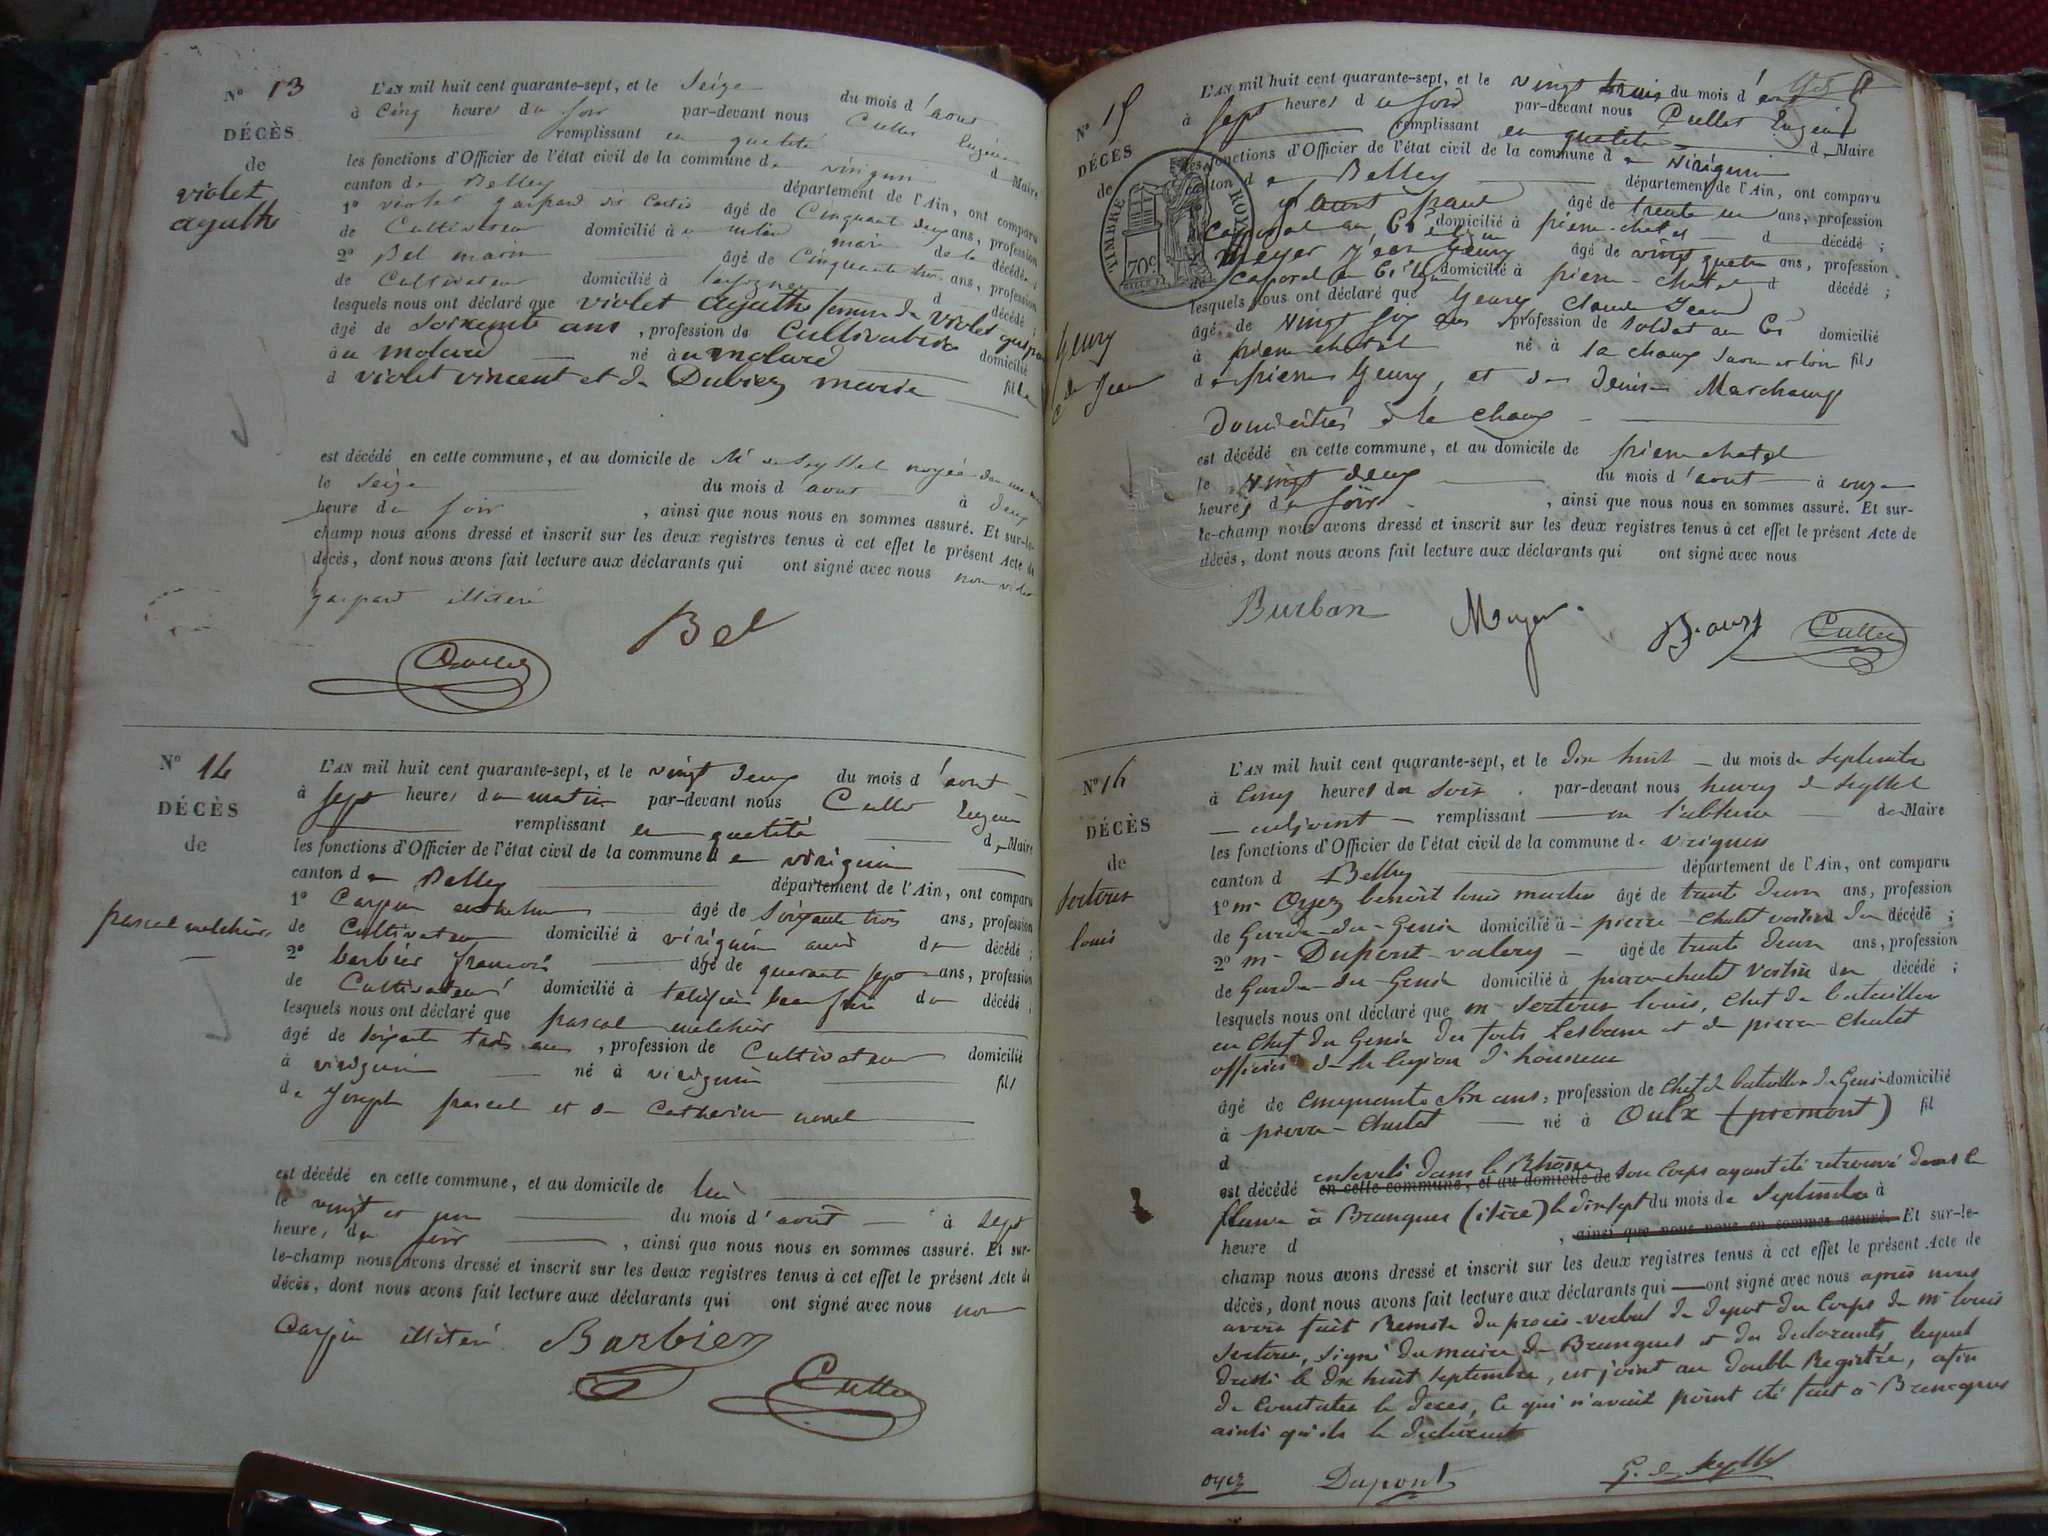 N° 13
DÉCÈS
de
violet
agathe
L'AN mil huit cent quarante-sept, et le Seize du mois d'aout
à Cinq heures du soir par-devant nous Cullet Eugène
remplissant en quetité d Maire
les fonctions d'Officier de l'état civil de la commune de virignin
canton de Belley département de l'Ain, ont comparu
1° violet gaspard dit âgé de Cinquant deux ans, profession
de Cultivateur domicilié à mari de la décédée
2° Bel marin âgé de Cinquante trois ans, profession
de Cultivateur domicilié à d décédé ;
lesquels nous ont déclaré que violet agathe femme de violet gaspard
âgé de soixante ans , profession de Cultivatrice domicilié
à au molard né à au molard fille
d violet vincent et de Dubiez marie
est décédé en cette commune, et au domicile de Mr de Seyssel noyée dans une
le Seize du mois d'aout à deux
heure du soir , ainsi que nous nous en sommes assuré. Et sur-le-
champ nous avons dressé et inscrit sur les deux registres tenus à cet effet le présent Acte de
décès, dont nous avons fait lecture aux déclarants qui ont signé avec nous non violet
gaspard illiteré
Bel
Cullet
N° 14
DÉCÈS
de
pascal melchior
L'AN mil huit cent quarante-sept, et le vingt deux du mois d'aout
à sept heures du matin par-devant nous Cullet Eugène
remplissant en quetité d Maire
les fonctions d'Officier de l'état civil de la commune de virignin
canton de Belley département de l'Ain, ont comparu
1° Carpin anthelme âgé de soixante trois ans, profession
de Cultivateur domicilié à virignin ami du décédé ;
2° barbier francois âgé de quarante sept ans, profession
de Cultivateur domicilié à beau frère du décédé ;
lesquels nous ont déclaré que pascal melchior
âgé de soixante trois ans , profession de Cultivateur domicilié
à virignin né à virignin fils
de Joseph pascal et de Catherine
est décédé en cette commune, et au domicile de lui
le vingt et un du mois d'aout à sept
heure, du soir , ainsi que nous nous en sommes assuré. Et sur-
le-champ nous avons dressé et inscrit sur les deux registres tenus à cet effet le présent Acte de
décès, dont nous avons fait lecture aux déclarants qui ont signé avec nous non
Carpin illiteré Barbier
Cullet
N° 15
DÉCÈS
de
Geury
Jean
TIMBRE ROYAL
70c
L'AN mil huit cent quarante-sept, et le vingt trois du mois d'aout
à sept heures du soir par-devant nous Cullet Eugène
remplissant en quetité d Maire
les fonctions d'Officier de l'état civil de la commune de virignin
canton de Belley département de l'Ain, ont comparu
âgé de trente un ans, profession
caporal au domicilié à pierre-chatel d décédé ;
âgé de vingt quatre ans, profession
de caporal au domicilié à pierre-chatel d décédé ;
lesquels nous ont déclaré que Geury Claude Jean
âgé de vingt six ans profession de soldat au domicilié
à pierre chatel né à la chaux Saone et loire fils
de pierre Geury, et de denise Marchamp
Domiciliés à la chaux
est décédé en cette commune, et au domicile de pierre chatel
le vingt deux du mois d'aout à onze
heures du soir , ainsi que nous nous en sommes assuré. Et sur-
le-champ nous avons dressé et inscrit sur les deux registres tenus à cet effet le présent Acte de
décès, dont nous avons fait lecture aux déclarants qui ont signé avec nous
Burban Meyer Cullet
N° 16
DÉCÈS
de
Sertour
louis
L'AN mil huit cent quarante-sept, et le dix huit du mois de Septembre
à Cinq heures du soir par-devant nous henry de Seyssel
adjoint remplissant en l'absence de Maire
les fonctions d'Officier de l'état civil de la commune de virignin
canton d Belley département de l'Ain, ont comparu
1° mr Oyez benoit louis âgé de trente deux ans, profession
de Garde du Genie domicilié à pierre-chatel voisin du décédé ;
2° mr Dupont valery âgé de trente deux ans, profession
de Garde du Genie domicilié à pierre-chatel voisin du décédé ;
lesquels nous ont déclaré que mr Sertour louis, Chef de bataillon
en Chef du Genie du forts Lesbane et de pierre-Chatel
officier de la legion d'honneur
âgé de cinquante Six ans, profession de Chef de bataillon du Genie domicilié
à pierre-Chatel né à Oulx (piemont) fil
d
est décédé enseveli dans le Rhône en cette commune, et au domicile de son Corps ayant été retrouvé dans le
fleuve à Brangues (isère) le dix sept du mois de Septembre à
heure d , ainsi que nous nous en sommes assuré. Et sur-le-
champ nous avons dressé et inscrit sur les deux registres tenus à cet effet le présent Acte de
décès, dont nous avons fait lecture aux déclarants qui ont signé avec nous après nous
avoir fait Remise du procès-verbal de depot du Corps de mr louis
Sertour, signé du maire de Brangues et des declarants, lequel
dressé le dix huit septembre, est joint au double Registre, afin
de Constater le deces, ce qui n'avait point été fait à Brangues
ainsi qu'ils le declarent
oyez Dupont de Seyssel